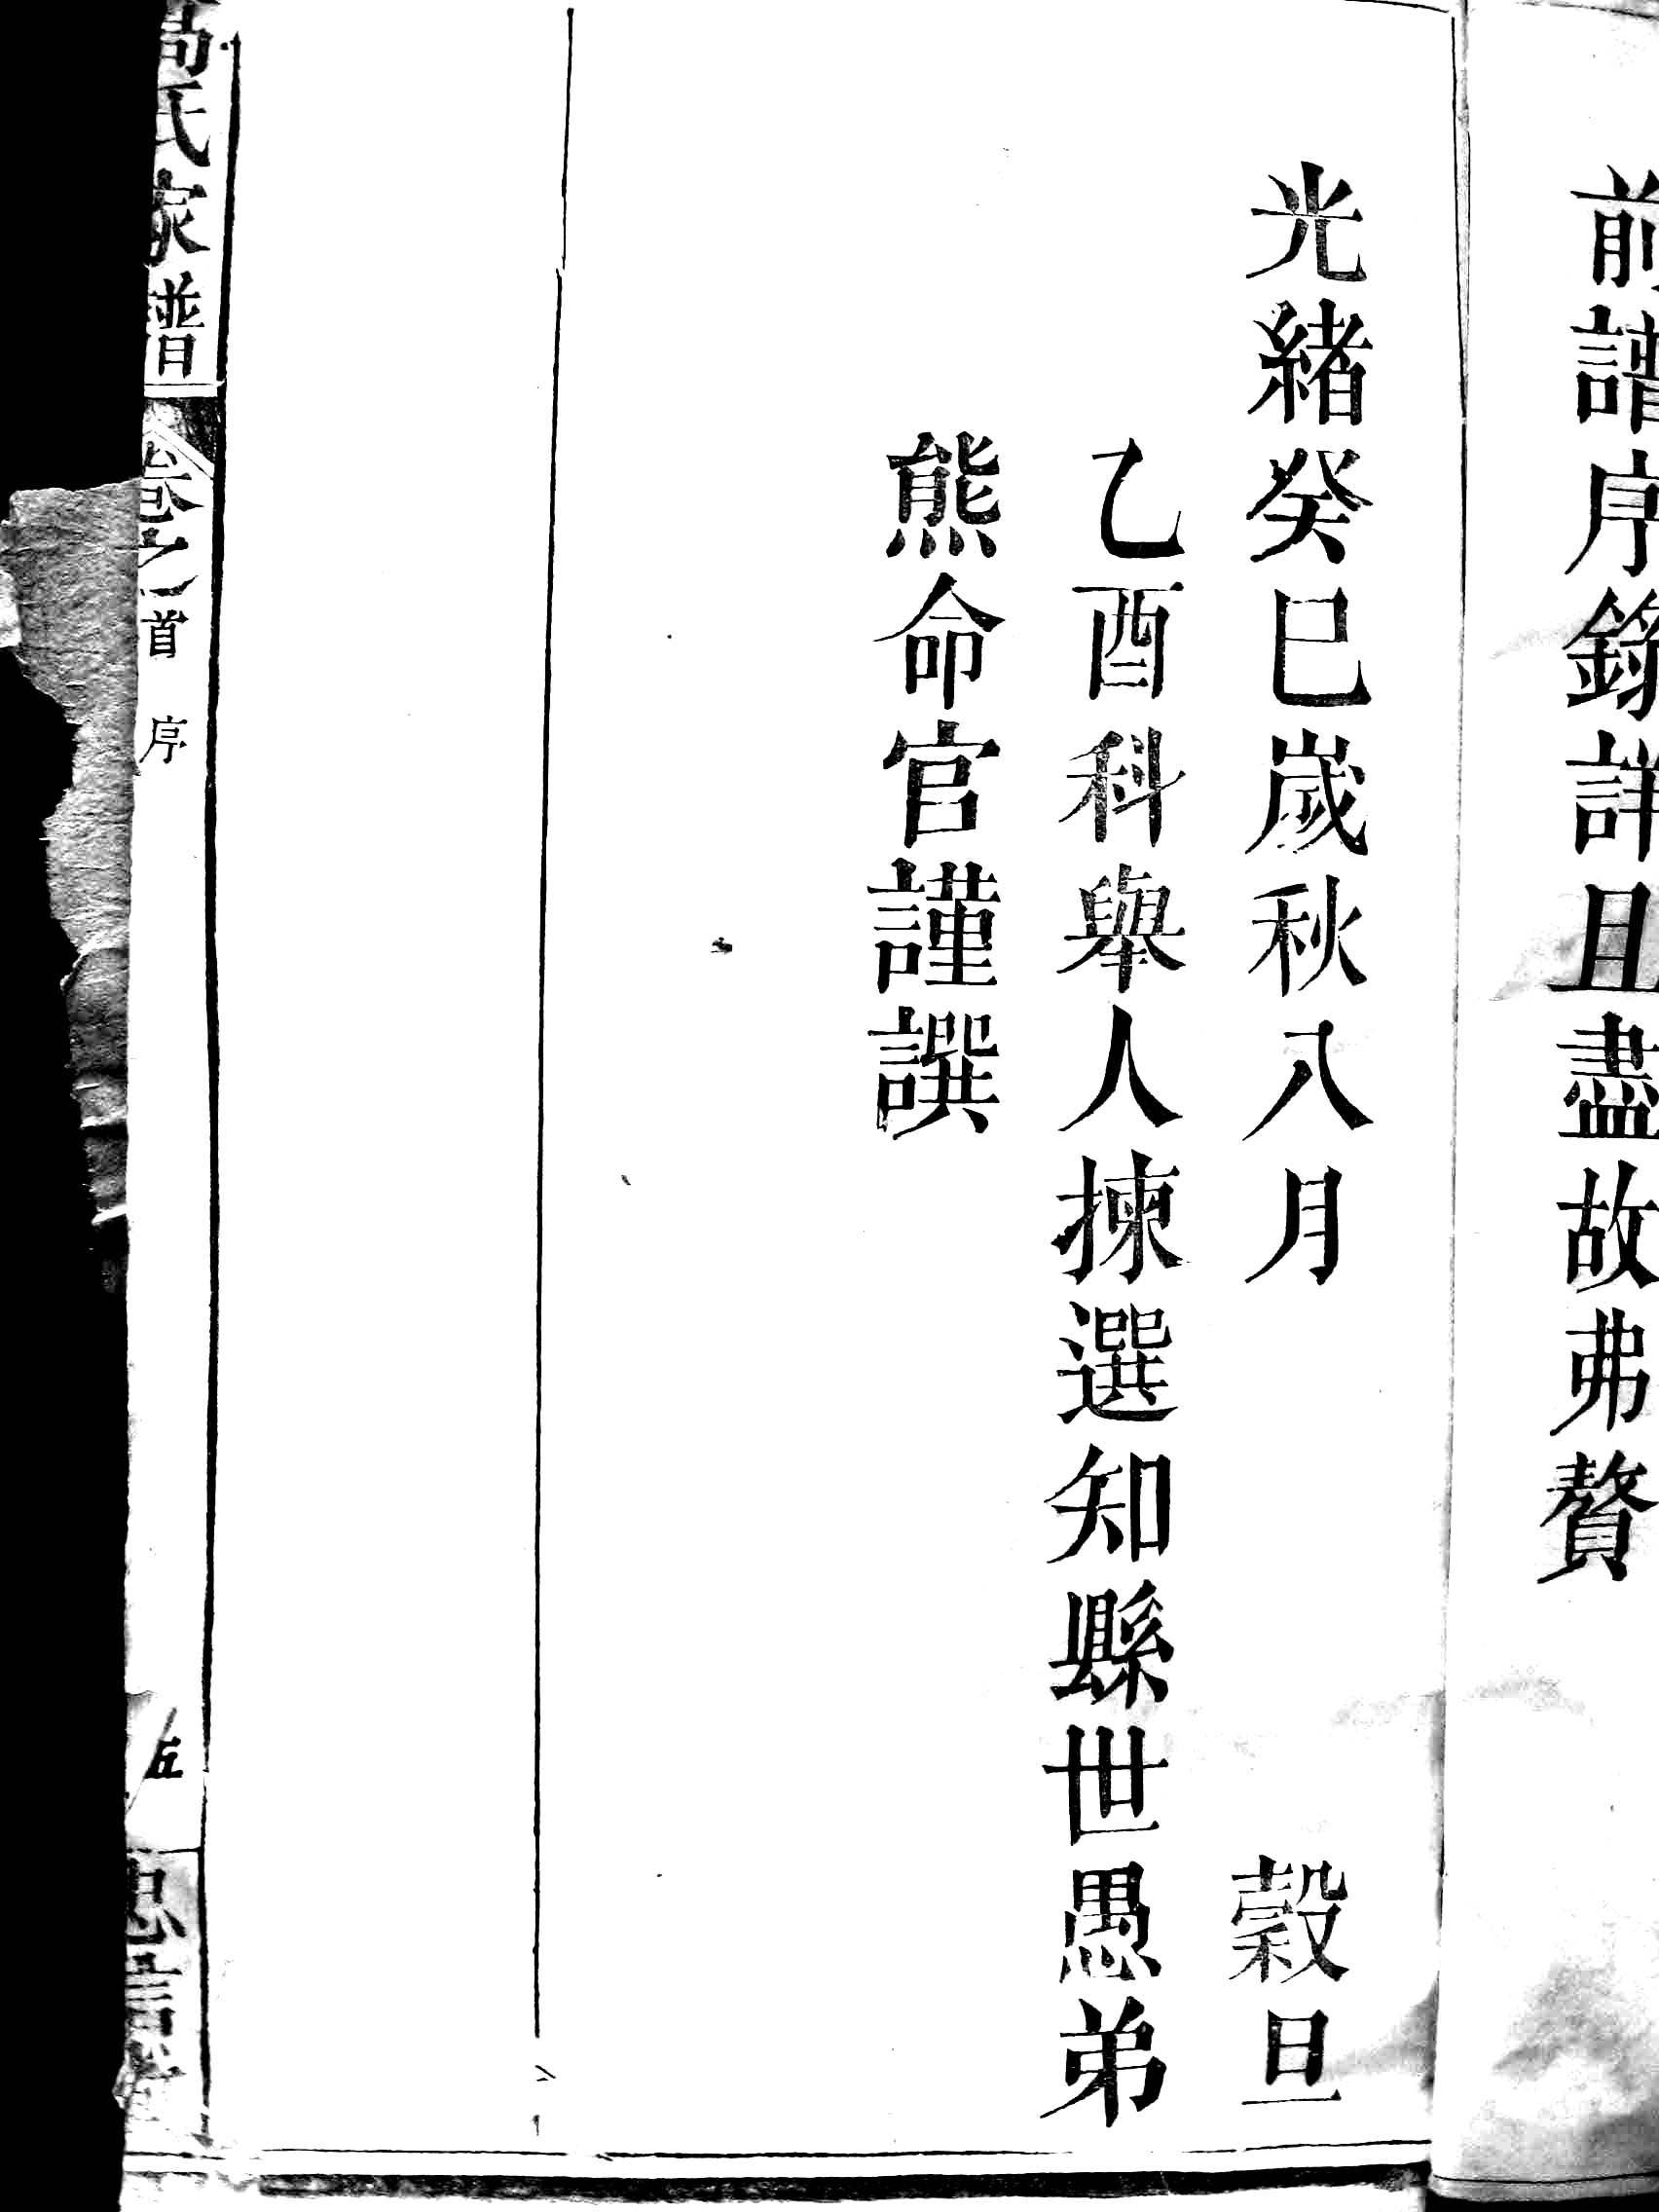 前譜序錄詳且盡故弗贅
光緒癸巳歲秋八月　穀旦
乙酉科舉人揀選知縣世愚弟
熊命官謹譔
氏家譜
卷之首　序
五
忠信堂